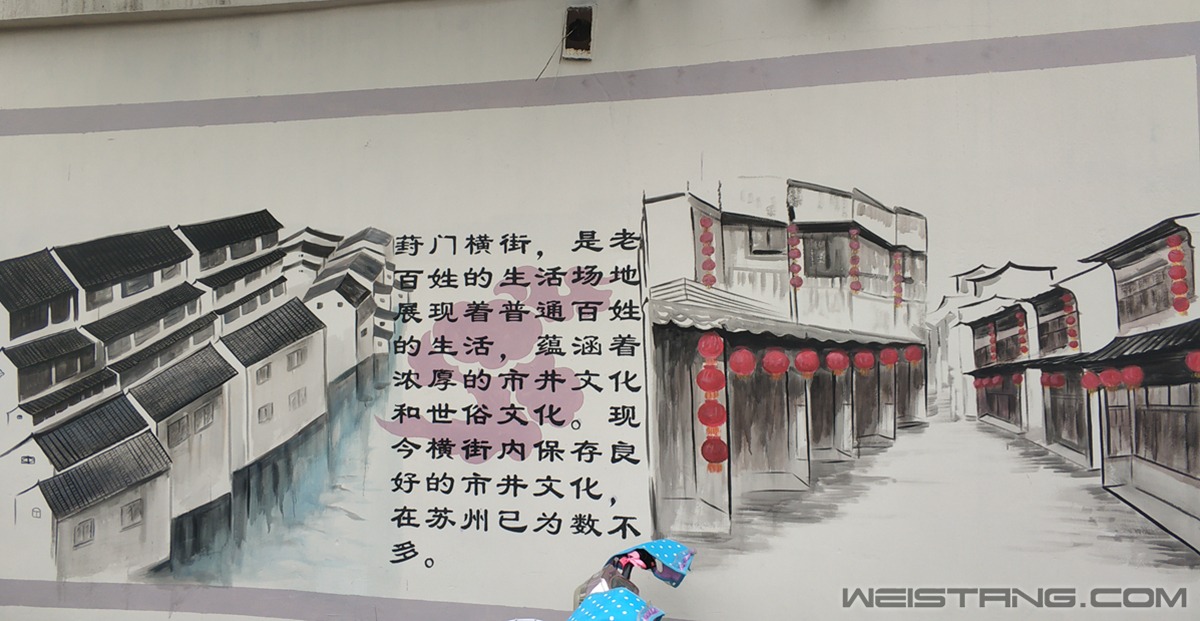 葑门横街，是老
百姓的生活场地
展现着普通百姓
的生活，蕴涵着
浓厚的市井文化
和世俗文化。现
今横街内保存良
好的市井文化，
在苏州已为数不
多。
WEISTANG.COM